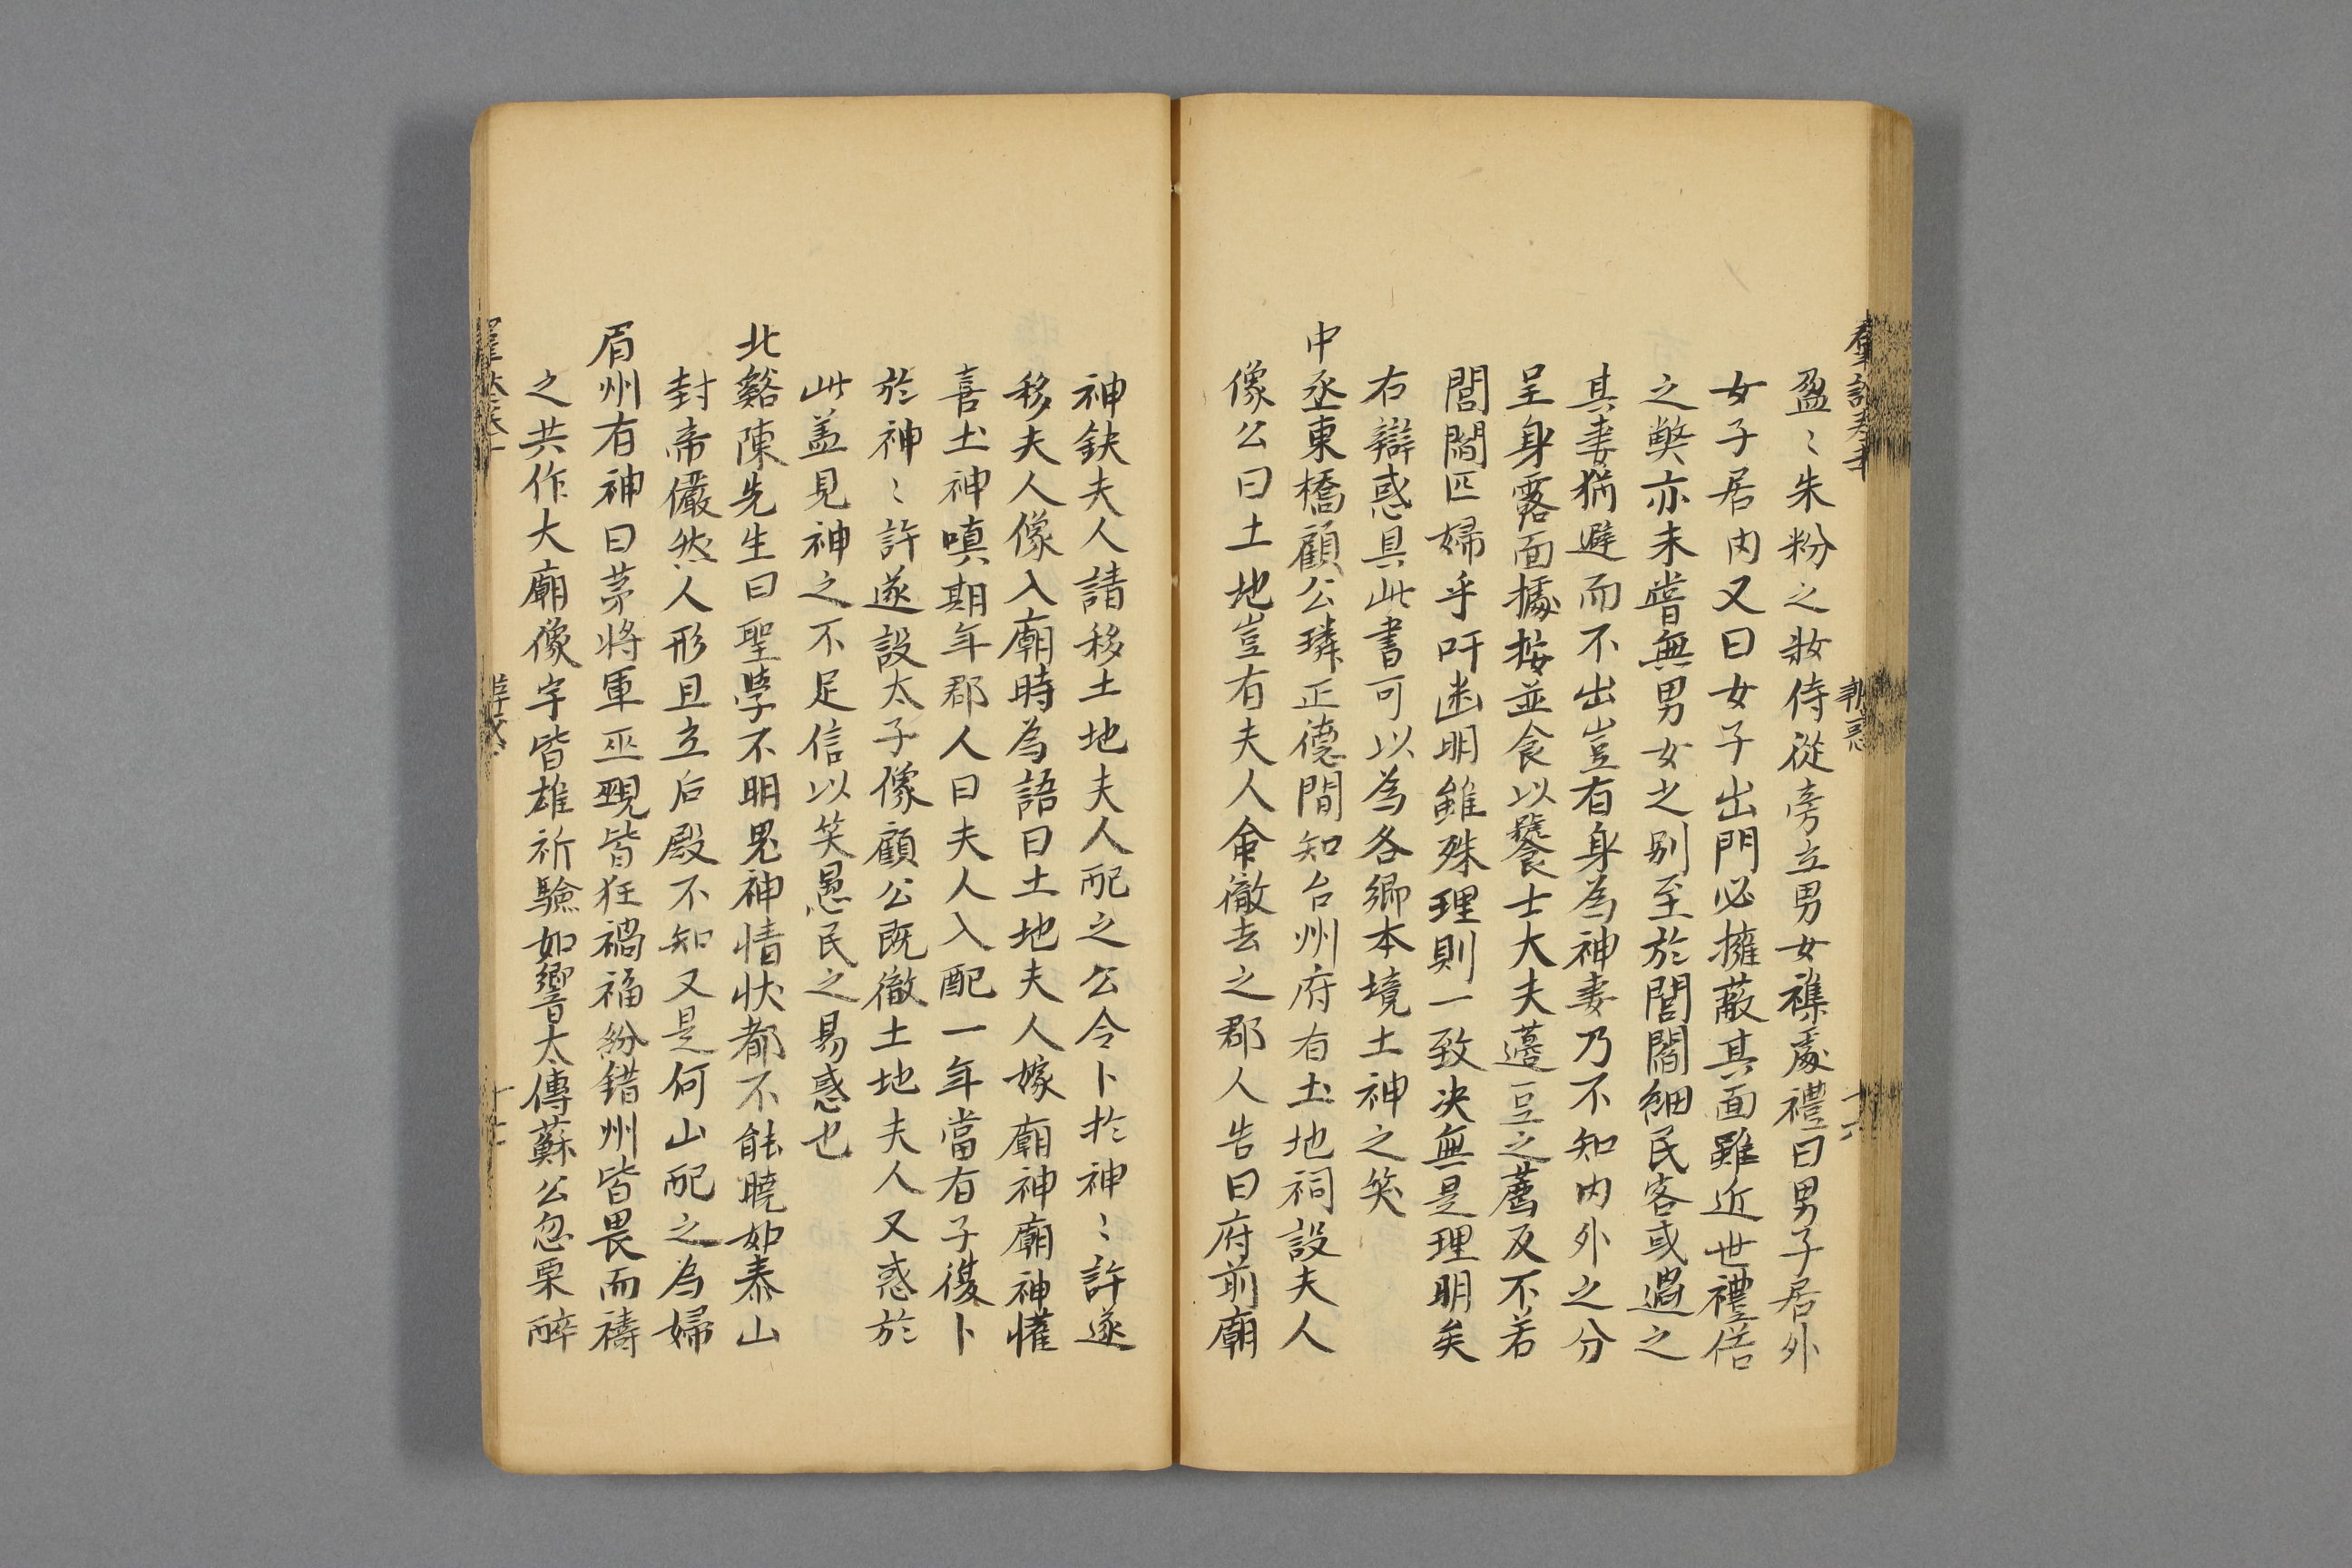 盈〻朱粉之妝侍從旁立男女襍處禮曰男子居外
女子居内又曰女子出門必擁蔽其面雖近世禮俗
之獘亦未嘗無男女之别至於閭閻細民客或過之
其妻猶避而不出豈有身為神妻乃不知内外之分
呈身露面據按並食以饗士大夫籩豆之薦反不若
閭閻匹婦乎吁幽明雖殊理則一致决無是理明矣
右辯惑具此書可以為各鄉本境土神之笑
中丞東橋顧公璘正德間知台州府有土地祠設夫人
像公曰土地豈有夫人命徹去之郡人告曰府前廟
神鈌夫人請移土地夫人配之公令卜於神〻許遂
移夫人像入廟時為語曰土地夫人嫁廟神廟神懽
喜土神嗔期年郡人曰夫人入配一年當有子復卜
於神〻許遂設太子像顧公既徹土地夫人又惑於
此盖見神之不足信以笑愚民之易惑也
北谿陳先生曰聖學不明鬼神情狀都不能曉如泰山
封帝儼然人形且立后殿不知又是何山配之為婦
眉州有神曰茅將軍巫覡皆狂禍福紛錯州皆畏而禱
之共作大廟像宇皆雄祈驗如響太傳蘇公忽乘醉